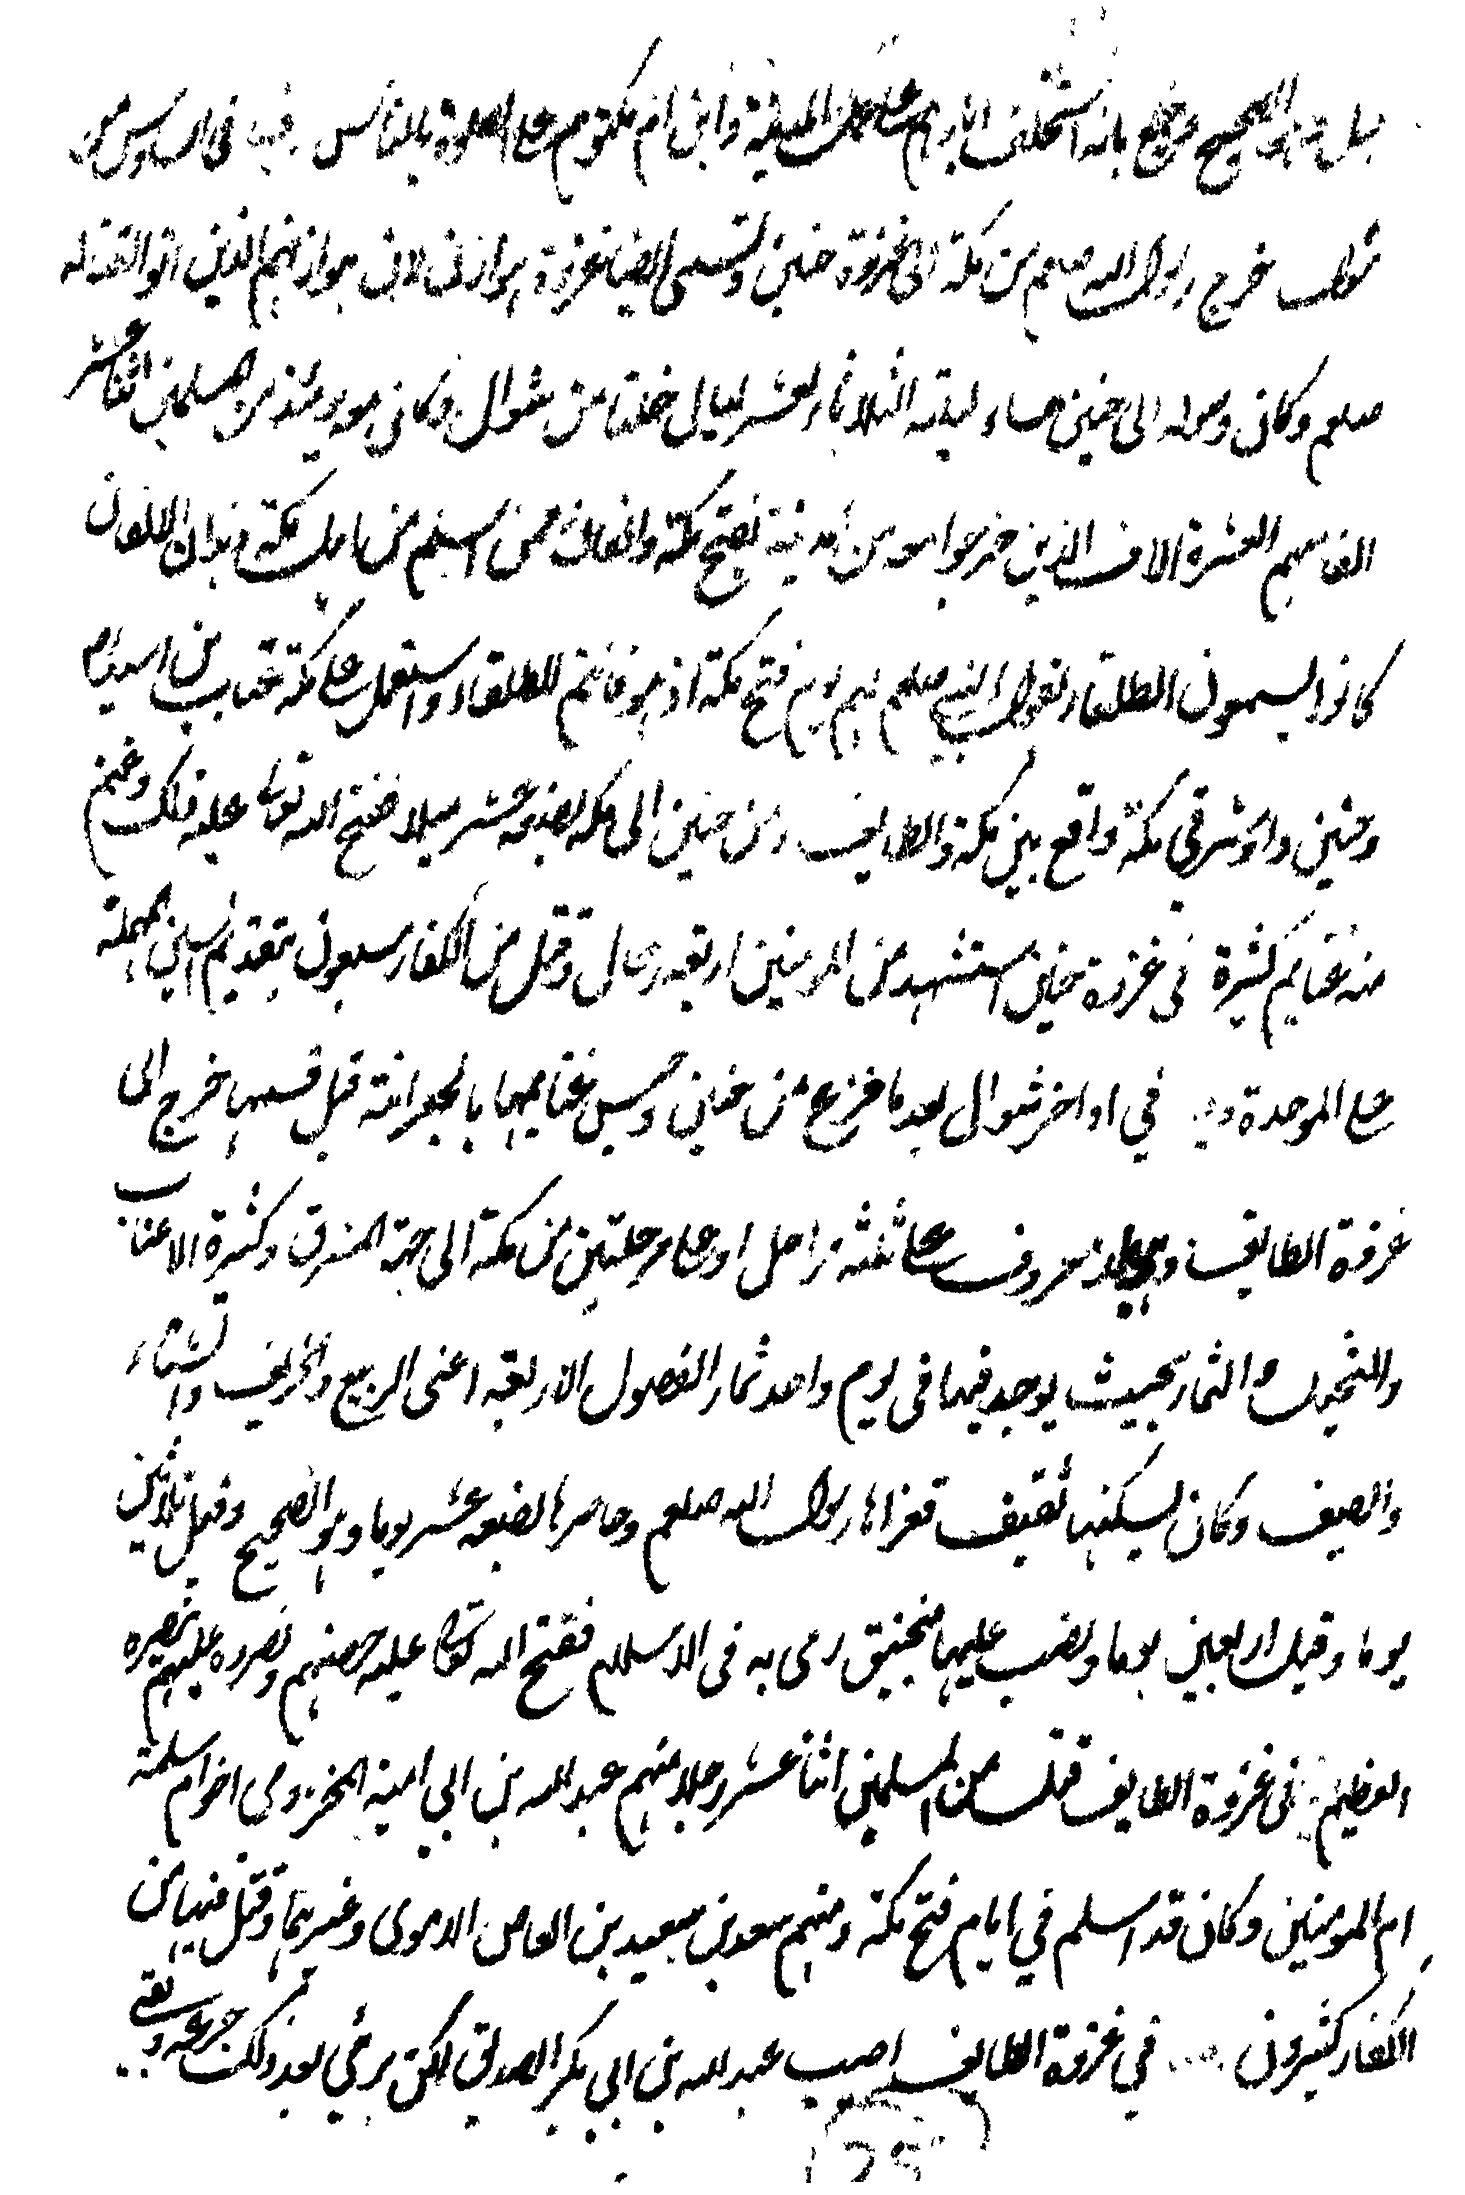 بل هو الصحيح وجمع بانه استخلف ابا رهم على المدينة وابن ام مكتوم على الصلوة بالناس وفيها في السادس من
شوال خرج رسول الله صلعم من مكة الى غزوة حنين وتسمى ايضا غزوة هوازن لان هوازنهم الذين اتوا لقتاله
صلعم وكان وصوله الى حنين مساء ليلة الثلاثاء لعشر ليال خلت من شوال وكان معه يومئذ من المسلمين اثنا عشر
الفا منهم العشرة الاف الذين خرجوا معه من المدينة لفتح مكة والفان ممن اسلم من اهل مكة وهذان الالفان
كانوا يسمون الطلقاء لقول النبي صلعم لهم يوم فتح مكة اذهبوا فانتم الطلقاء واستعمل على مكة عتاب بن اسيد
وحنين واد شرقي مكة واقع بين مكة والطايف ومن حنين الى مكة بضعة عشر ميلا ففتح الله تعالى عليه ذلك وغنم
منه غنايم كثيرة في غزوة حنين استشهد من المومنين اربعة رجال وقتل من الكفار سبعون بتقديم السين المهملة
على الموحدة وفيها في اواخر شوال بعد ما فرغ من حنين وحبس غنايمها بالجعرانة قبل قسمها خرج الى
غزوة الطايف وهي بلد معروف على ثلثة مراحل او على مرحلتين من مكة الى جهة المشرق وكثيرة الاعناب
والنخيل والثمار بحيث يوجد فيها في يوم واحد ثمار الفصول الاربعة اعنى الربيع والخريف والشتاء
والصيف وكان يسكنها ثقيف فغزاها رسول الله صلعم وحاصرها بضعة عشر يوما وهو الصحيح وقيل ثلاثين
يوما وقيل اربعين يوما ونصب عليها منجنيق رمى به في الاسلام ففتح الله تعالى عليه حصنهم ونصره عليهم بنصره
العظيم في غزوة الطايف قتل من المسلمين اثنا عشر رجلا منهم عبد الله بن ابي امية المخزومى اخو ام سلمة
ام المومنين وكان قد اسلم في ايام فتح مكة ومنهم سعد بن سعيد بن العاص الاموى وغيرهما وقتل فيها من
الكفار كثيرون في غزوة الطايف اصيب عبد الله بن ابي بكر الصديق لكن برئ بعد ذلك جرحه وبقى